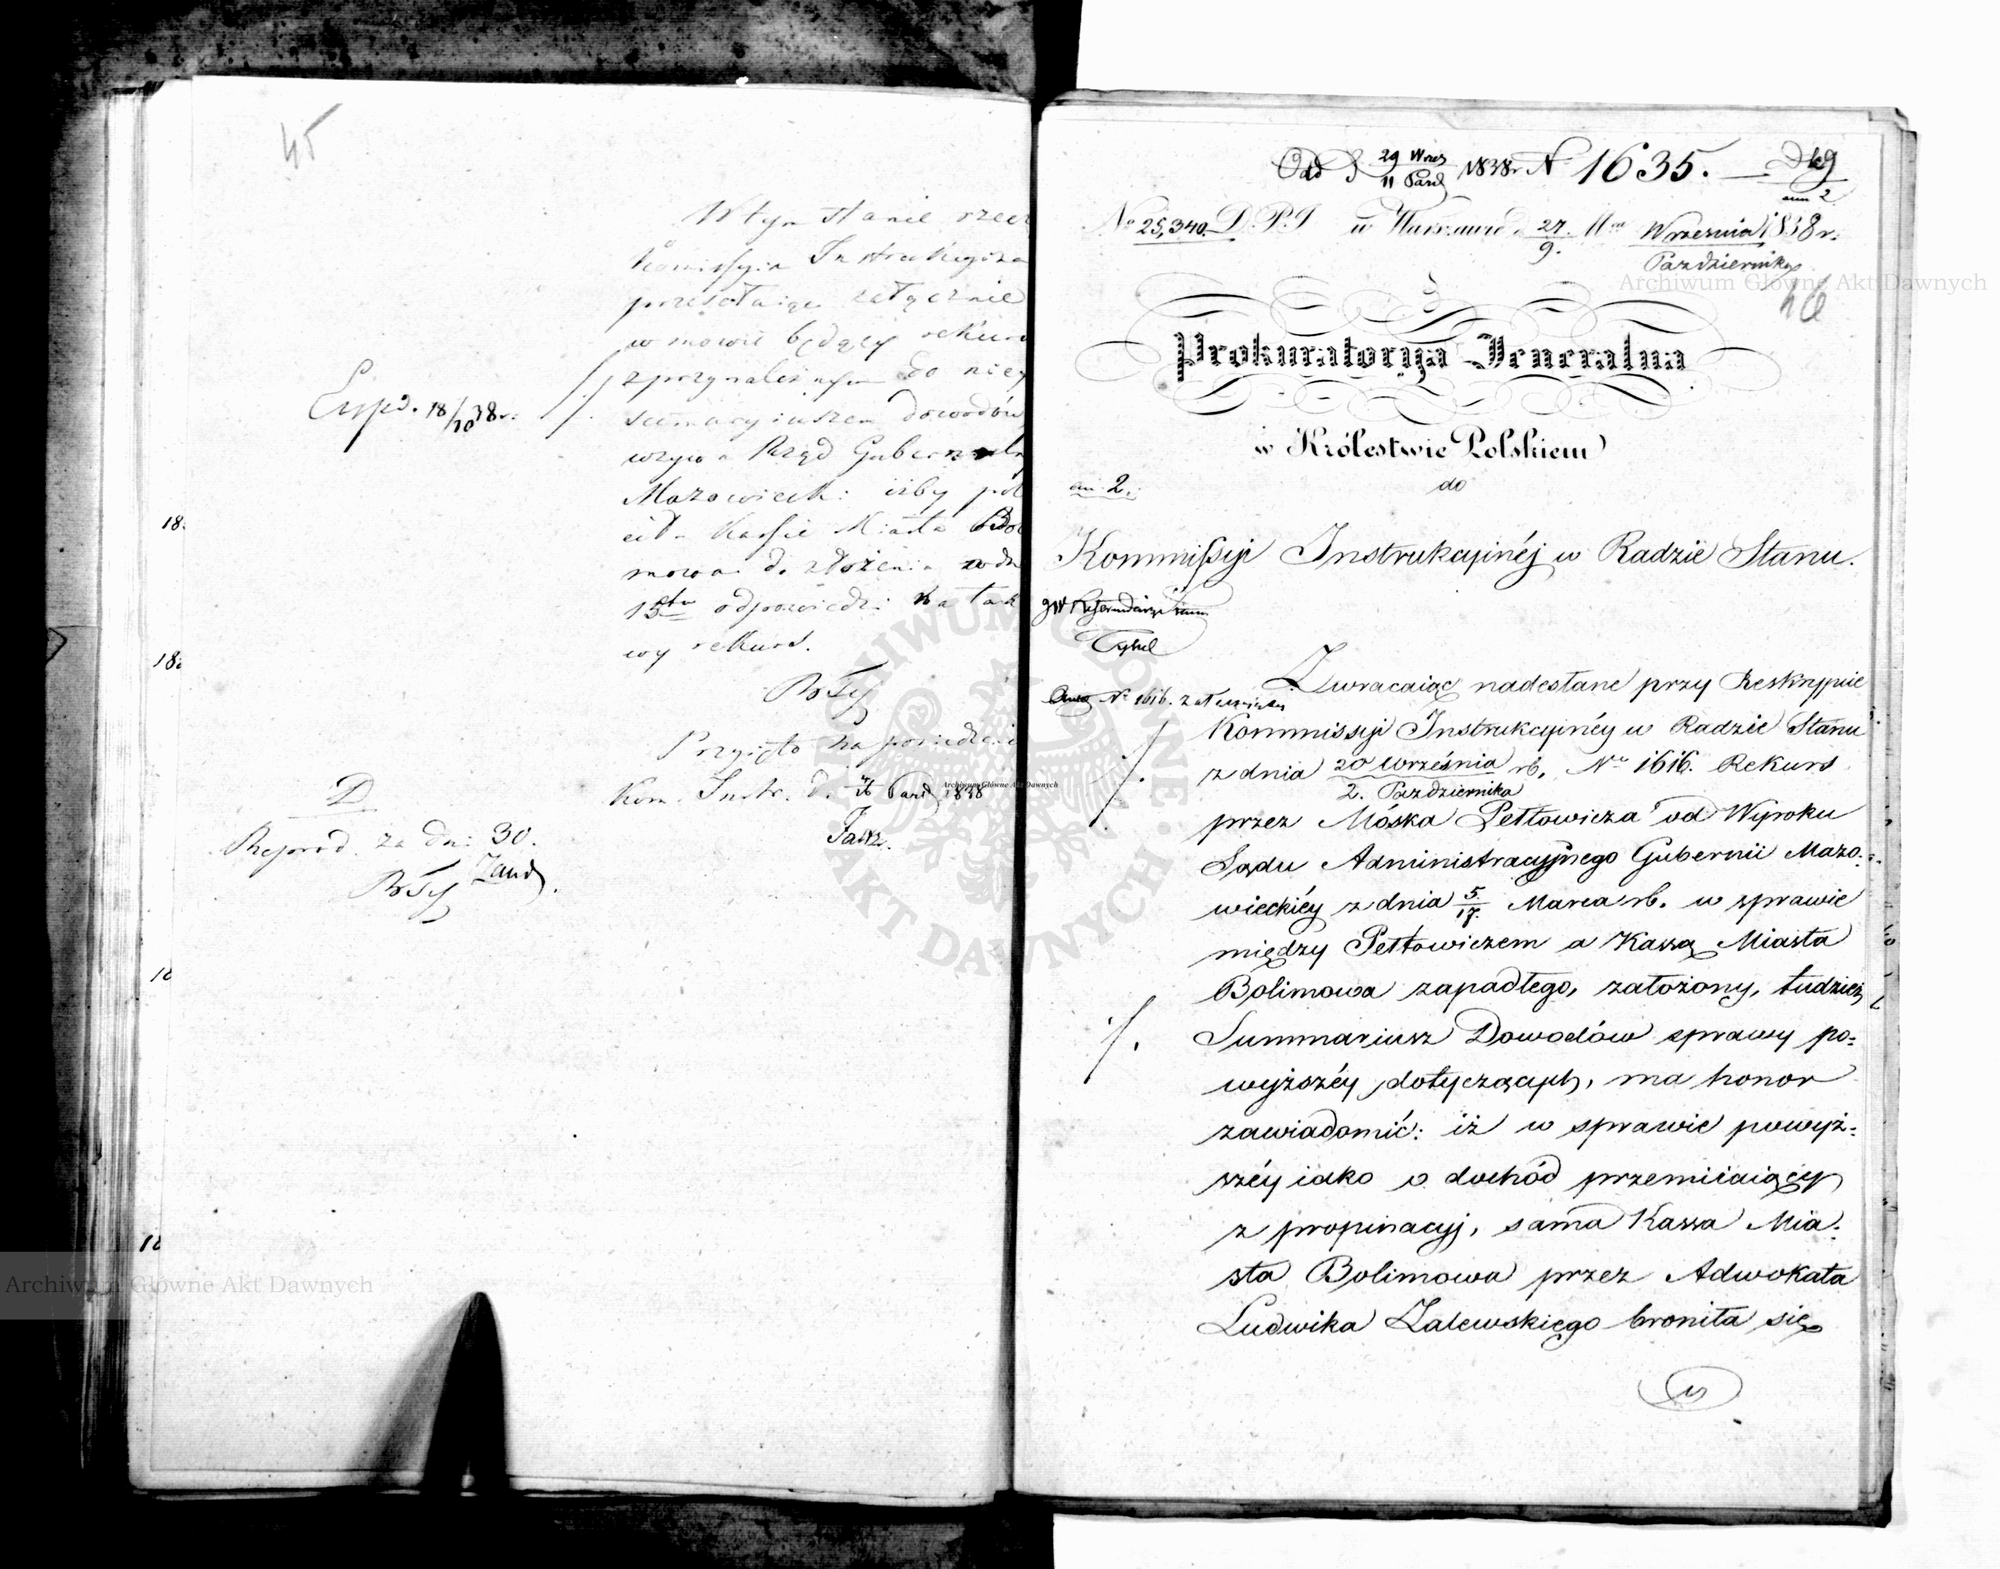 45
W tym stanie rzecz
Kommissyia Instrukcyina
przesełaiąc załącznie
w mowie będący rekurs
z przynależnym do niey
summaryiuszem dowodów
wzywa Rząd Gubernialn
Mazowieck: iżby pol
cił Kassie Miasta Bol
mowa do złożenia w dn
15tu odpowiedzi na tak
wy rekurs.
Przyięto na posiedzeniu
Kom. Instr. d. Paźd 1838
Exped. 18/10 38 r.
18.
18.
D
Reprod. za dni 30.
Od d 29 Wrześ / 11 Paźd 1838 r. N 1635.
ann 2
No 25,340. D. P. J w Warszawie d. 27. / 9. Mca Września / Października 1838 r.
46
Prokuratorya Jeneralna
w Królestwie Polskiem
do
an: 2.
Kommissyi Instrukcyinéj w Radzie Stanu.
JW Referendarz Stanu
No 1616. załatwiony
Zwracaiąc nadesłane przy Reskrypcie
Kommissyi Instrukcyinéy w Radzie Stanu
z dnia 20 września / 2. Października rb. No 1616. Rekurs
przez Móska Pełtowicza od Wyroku
Sądu Administracyjnego Gubernii Mazo-
wieckiéy z dnia 5/17. Marca rb. w sprawie
między Pełtowiczem a Kassą Miasta
Bolimowa zapadłego, założony, tudzież
Summariusz Dowodów sprawy po-
wyższéy dotyczących, ma honor
zawiadomić: iż w sprawie powyż-
széy iako o dochód przemiiaiący
z propinacyj, sama Kassa Mia-
sta Bolimowa przez Adwokata
Ludwika Zalewskiego broniła się
w
Archiwum Główne Akt Dawnych
Archiwum Główne Akt Dawnych
Archiwum Główne Akt Dawnych
ARCHIWUM GŁÓWNE AKT DAWNYCH